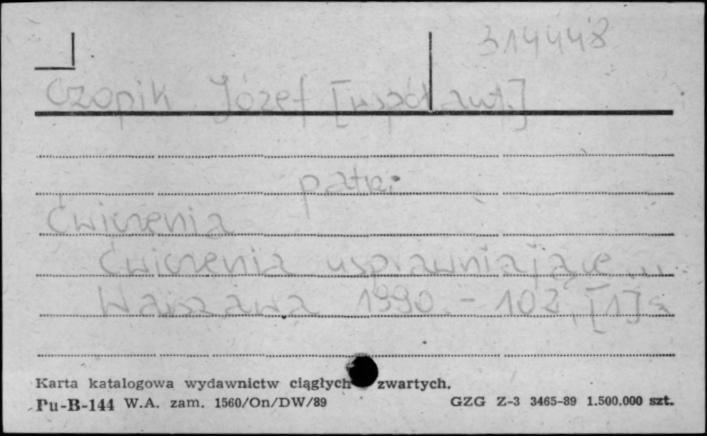 314448
Czopik Józef [współaut.]
patrz:
Ćwiczenia
Ćwiczenia usprawniające ...
Warszawa 1990. - 102, [1] s
Karta katalogowa wydawnictw ciągłych zwartych.
Pu-B-144 W.A. zam. 1560/On/DW/89 GZG Z-3 3465-89 1.500.000 szt.